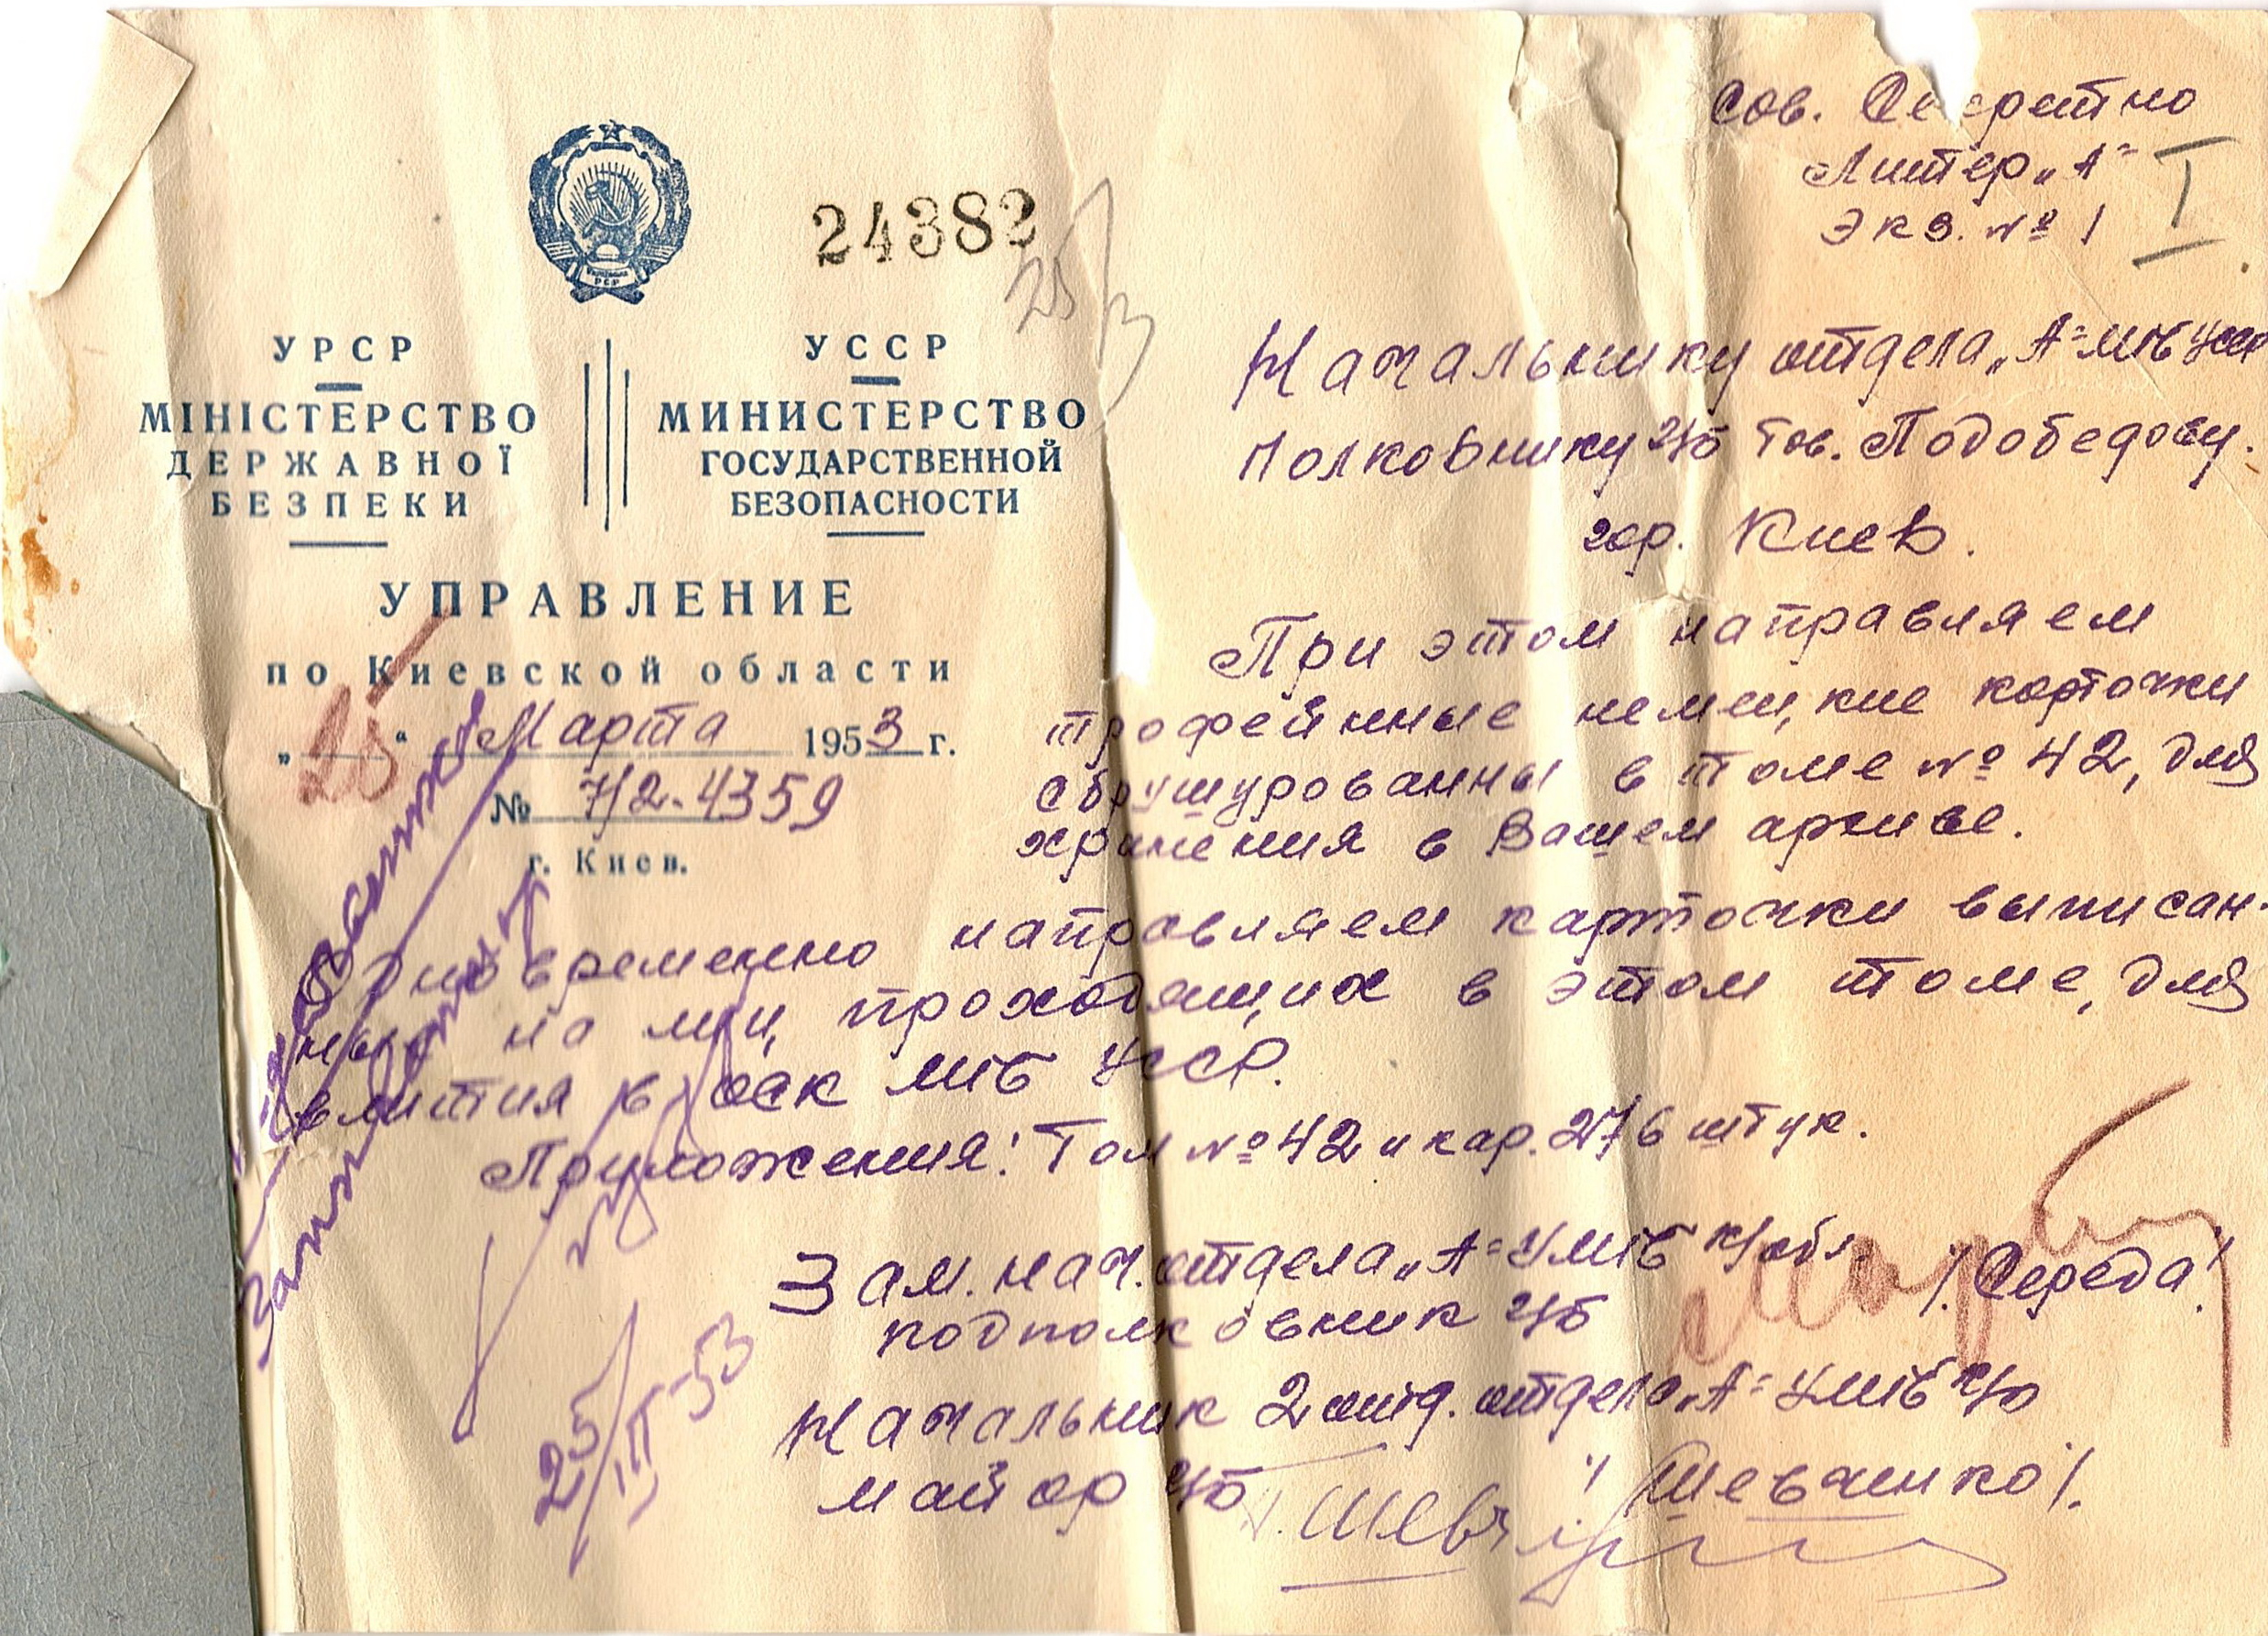 Сов. Секретно
Литер „А“
I
экз. № 1
24382
25/3
УРСР
МІНІСТЕРСТВО
ДЕРЖАВНОЇ
БЕЗПЕКИ
УССР
МИНИСТЕРСТВО
ГОСУДАРСТВЕННОЙ
БЕЗОПАСНОСТИ
УПРАВЛЕНИЕ
по Киевской области
„25“ Марта 1953 г.
№ 7/2-4359
г. Киев.
Начальнику отдела „А“ МГБ УССР
Полковнику г/б тов. Подобедову.
гор. Киев.
При этом направляем
трофейные немецкие карточки
сбрушурованны в томе № 42, для
хранения в Вашем архиве.
Одновременно направляем карточки выписан-
ны на лиц, проходящих в этом томе, для
влития в ОСК МГБ УССР.
Приложения: Том № 42 и кар. 276 штук.
Зам. нач. отдела „А“ УМГБ К/обл.
подполковник г/б
/. Середа/.
Начальник 2 отд. отдела „А“ УМГБ К/о
майор г/б
/Шевченко/.
25/III-53